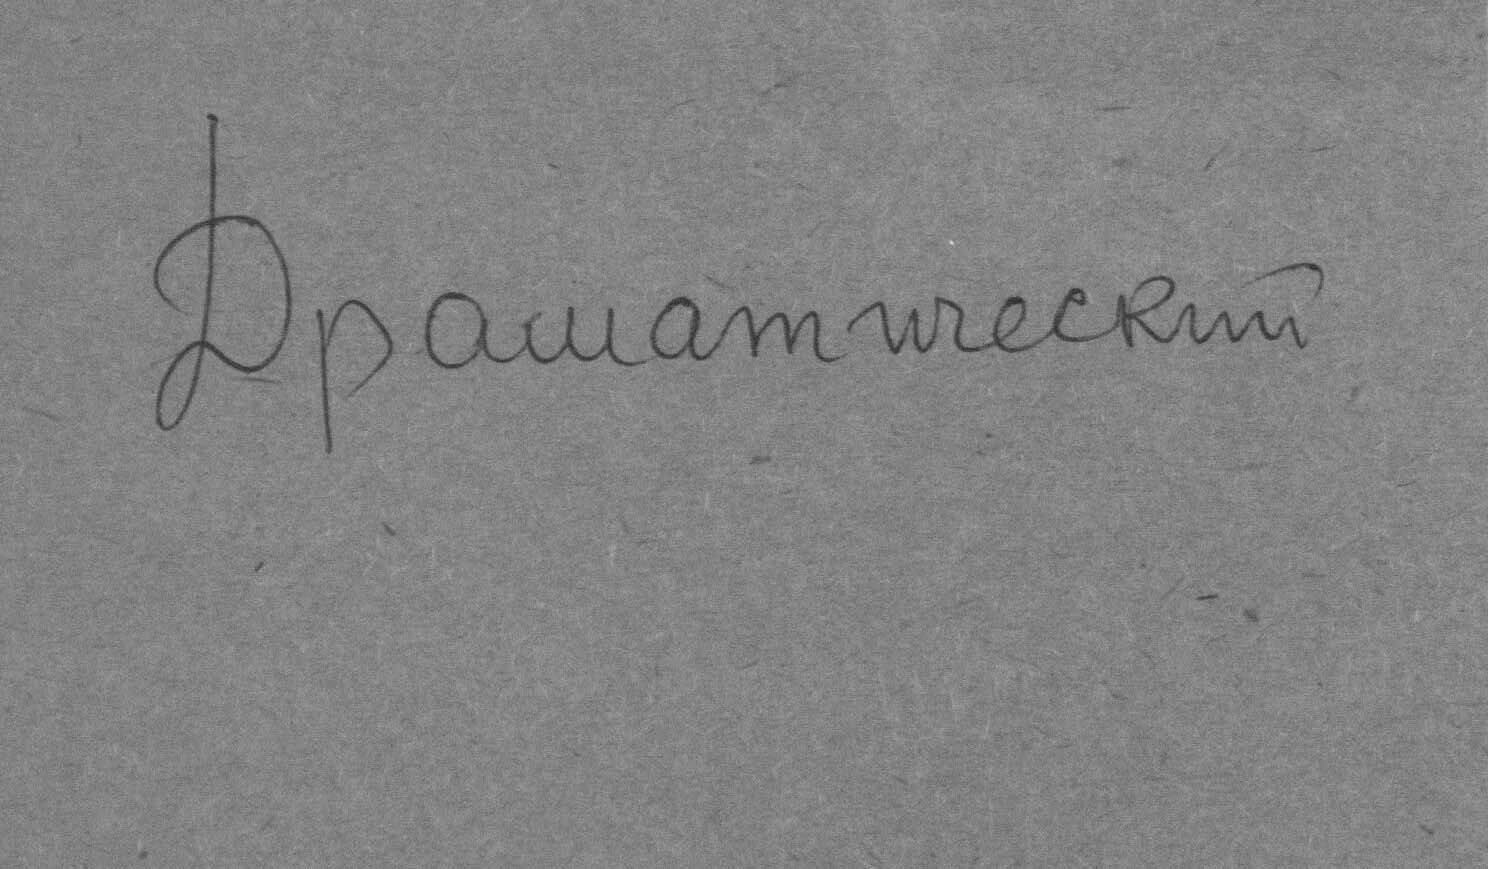 Драматический